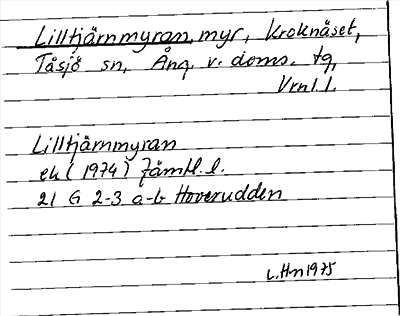 Lilltjärnmyran, myr, Kroknäset,
Tåsjö sn, Ång. v. doms. tg,
Vrnl.l.
Lilltjärnmyran
ek (1974) Jämtl. l.
21 G 2-3 a-b Hoverudden
L.Hn 1975